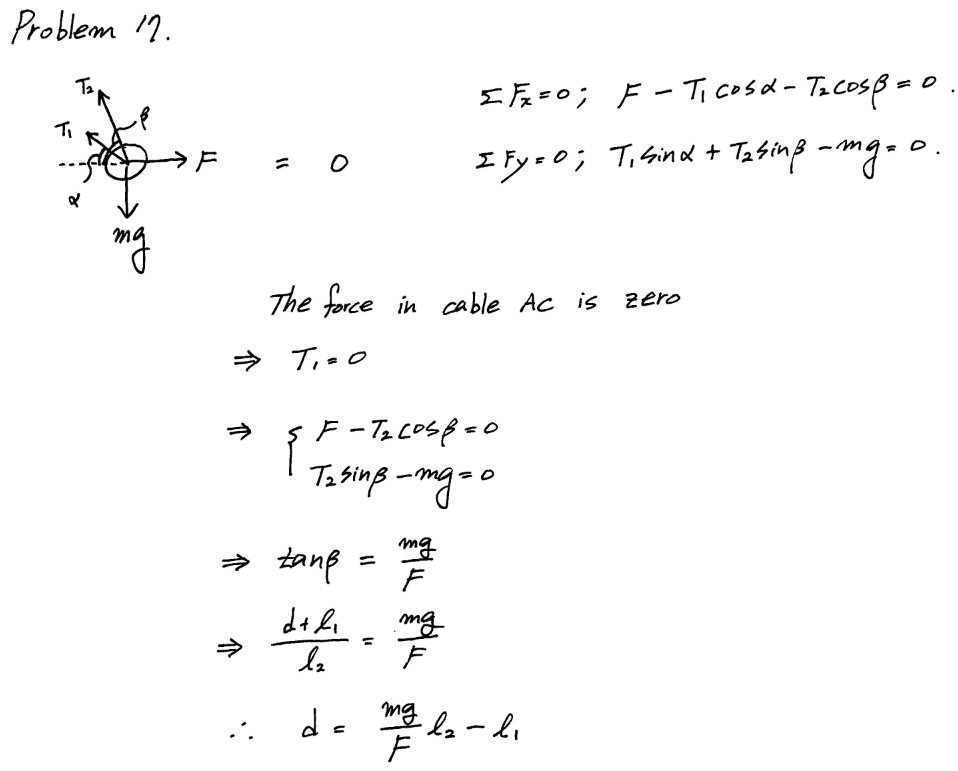 Problem 17.
T₂
β
T₁
F = 0
α
mg
ΣFx = 0; F - T₁cosα - T₂cosβ = 0.
ΣFy = 0; T₁sinα + T₂sinβ - mg = 0.
The force in cable AC is zero
⇒ T₁ = 0
⇒ { F - T₂cosβ = 0
T₂sinβ - mg = 0
⇒ tanβ = mg/F
⇒ (d + l₁)/l₂ = mg/F
∴ d = mg/F l₂ - l₁